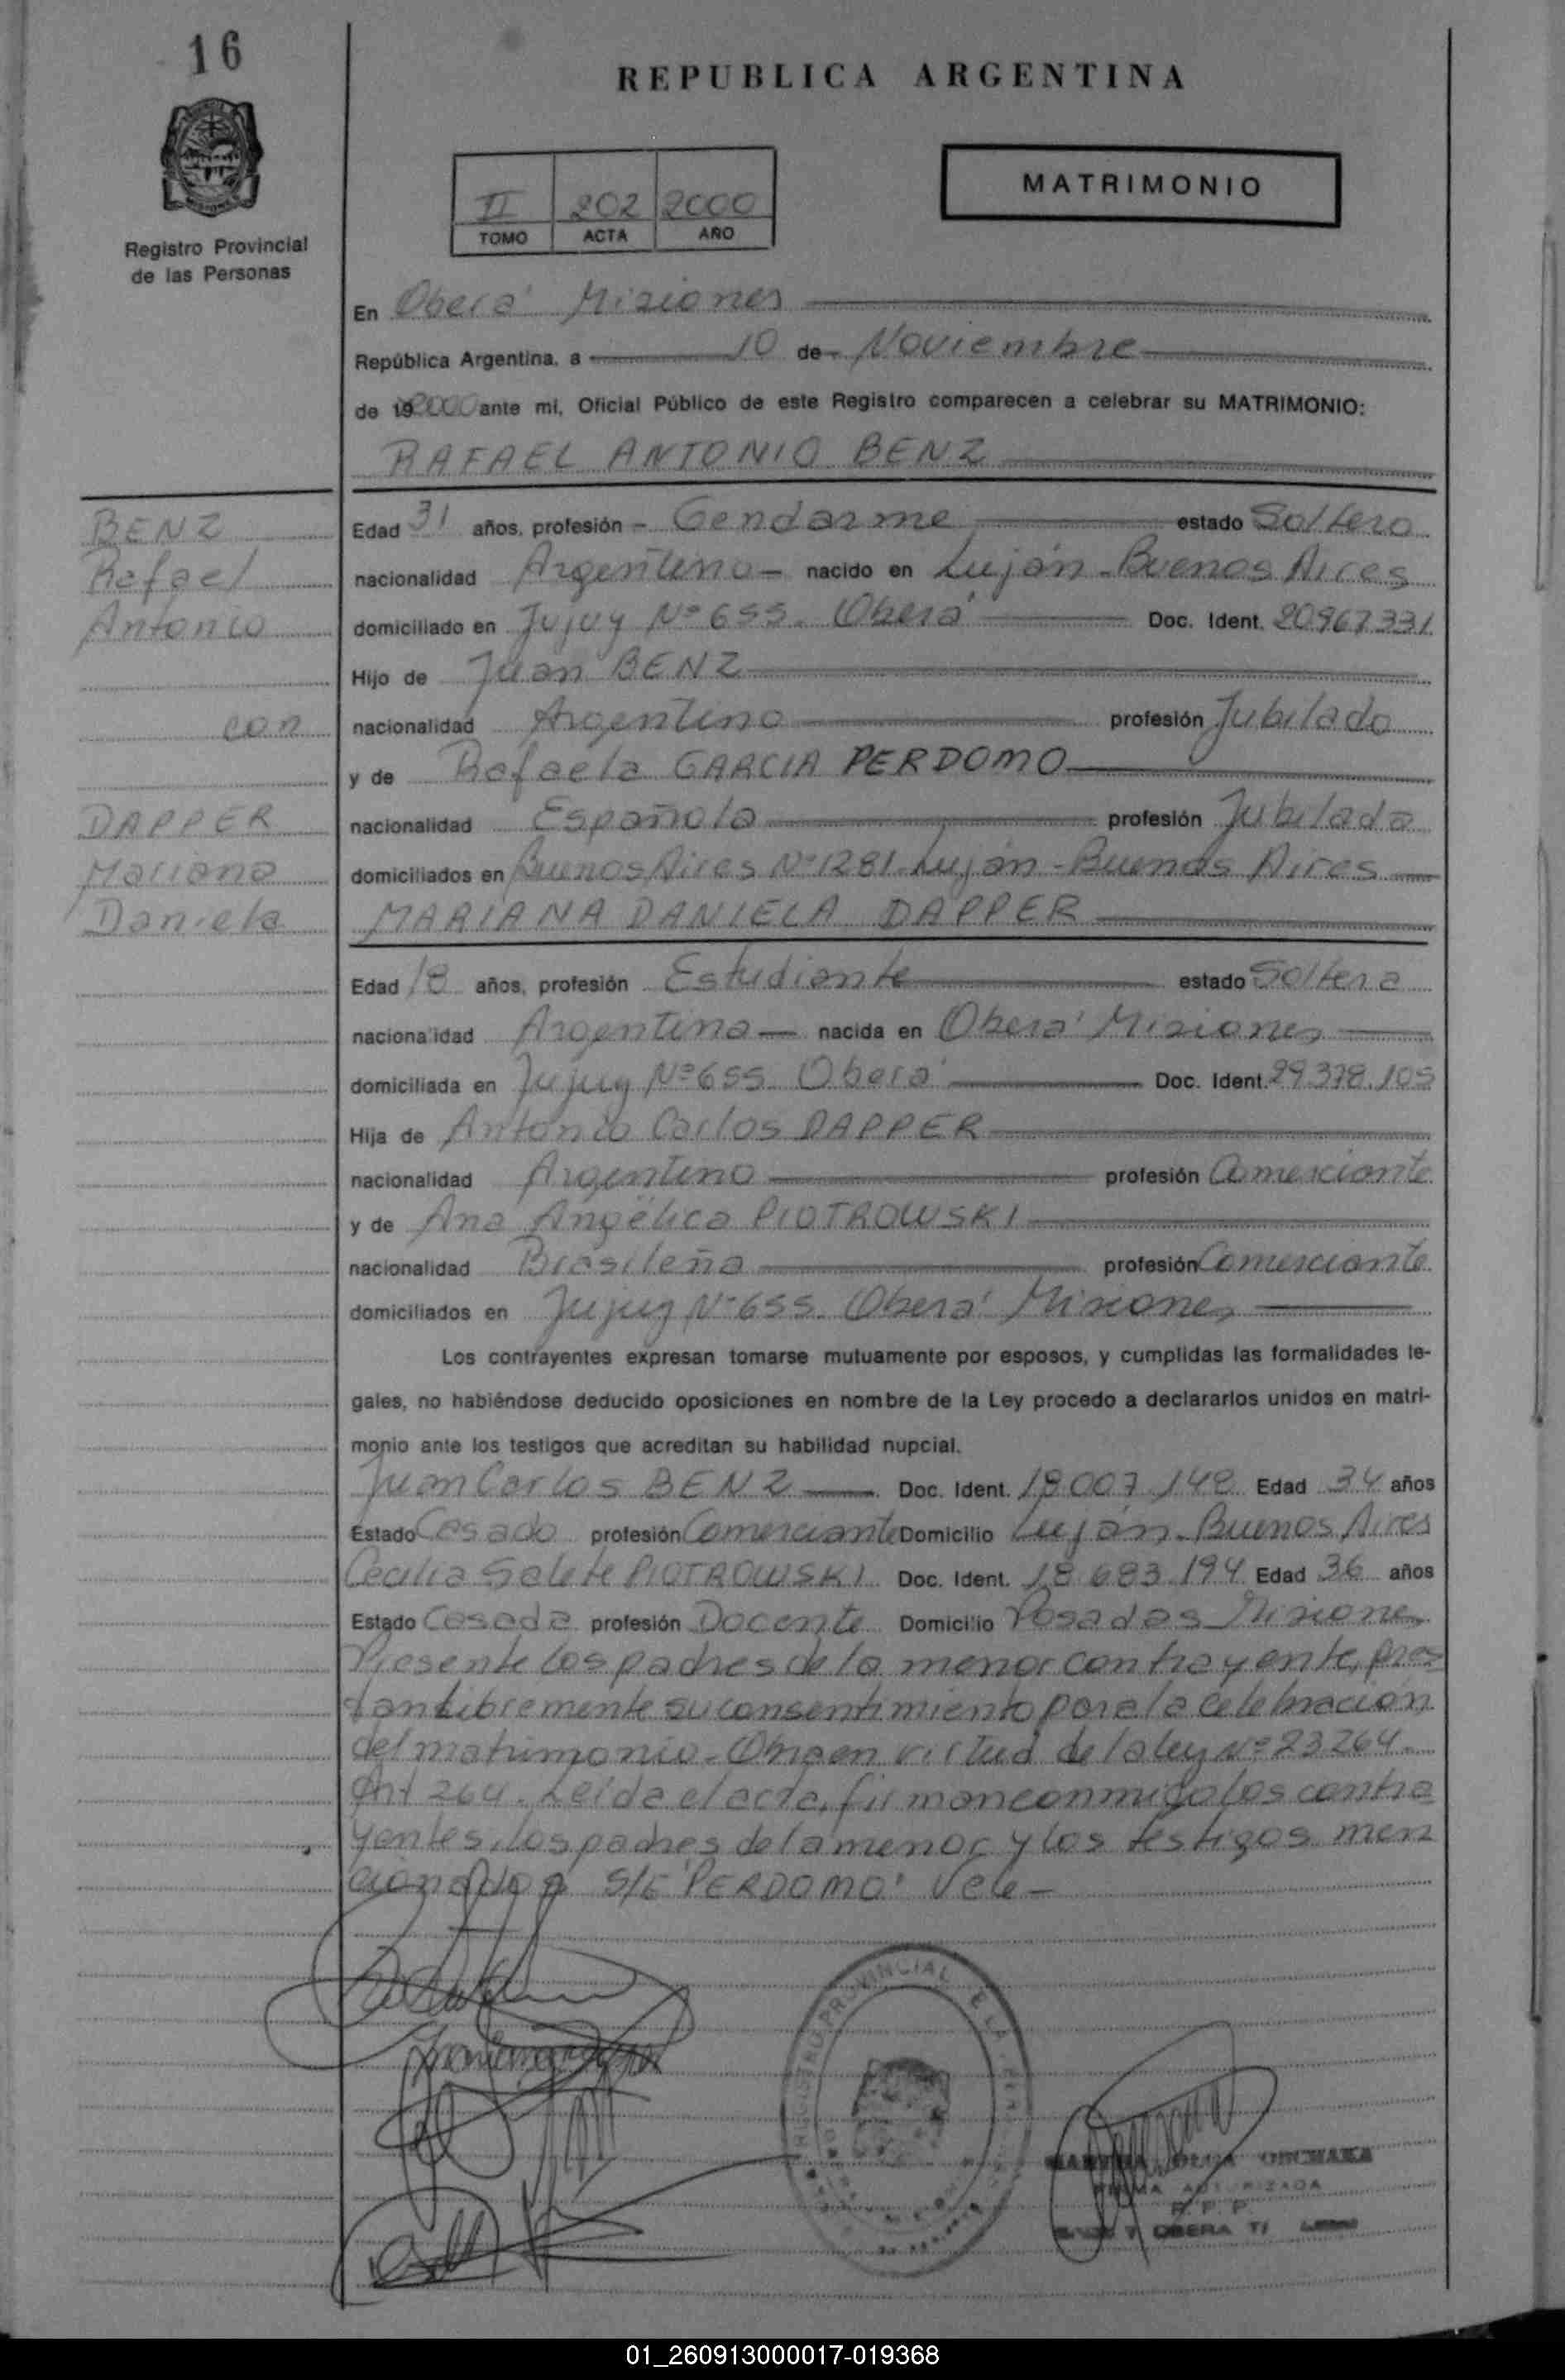 16
REPUBLICA ARGENTINA
Registro Provincial
de las Personas
II 202 2000
TOMO ACTA AÑO
MATRIMONIO
En Oberá Misiones
República Argentina, a 10 de Noviembre
de 19 2000 ante mi, Oficial Público de este Registro comparecen a celebrar su MATRIMONIO:
RAFAEL ANTONIO BENZ
BENZ
Rafael
Antonio
con
DAPPER
Mariana
Daniela
Edad 31 años, profesión - Gendarme estado Soltero
nacionalidad Argentino - nacido en Luján - Buenos Aires
domiciliado en Jujuy Nº 655. Oberá Doc. Ident. 20.967.331
Hijo de Juan BENZ
nacionalidad Argentino profesión Jubilado
y de Rafaela GARCIA PERDOMO
nacionalidad Española profesión Jubilada
domiciliados en Buenos Aires Nº 1281. Luján - Buenos Aires
MARIANA DANIELA DAPPER
Edad 18 años, profesión Estudiante estado Soltera
nacionalidad Argentina - nacida en Oberá Misiones
domiciliada en Jujuy Nº 655 Oberá Doc. Ident. 29.378.105
Hija de Antonio Carlos DAPPER
nacionalidad Argentino profesión Comerciante
y de Ana Angélica PIOTROWSKI
nacionalidad Brasileña profesión Comerciante
domiciliados en Jujuy Nº 655. Oberá Misiones
Los contrayentes expresan tomarse mutuamente por esposos, y cumplidas las formalidades le-
gales, no habiéndose deducido oposiciones en nombre de la Ley procedo a declararlos unidos en matri-
monio ante los testigos que acreditan su habilidad nupcial.
Juan Carlos BENZ Doc. Ident. 18.007.148 Edad 34 años
Estado Casado profesión Comerciante Domicilio Luján - Buenos Aires
Cecilia Salete PIOTROWSKI Doc. Ident. 18.683.194 Edad 36 años
Estado Casada profesión Docente Domicilio Posadas Misiones
Presente los padres de la menor contrayente, pres
tan libremente su consentimiento para la celebración
del matrimonio. Obra en virtud de la ley Nº 23264.
Art 264. Leída el acta, firman conmigo los contra
yentes, los padres de la menor y los testigos men
cionados S/E "PERDOMO" Vale -
REGISTRO PROVINCIAL
R. P. P.
OBERA
01_260913000017-019368